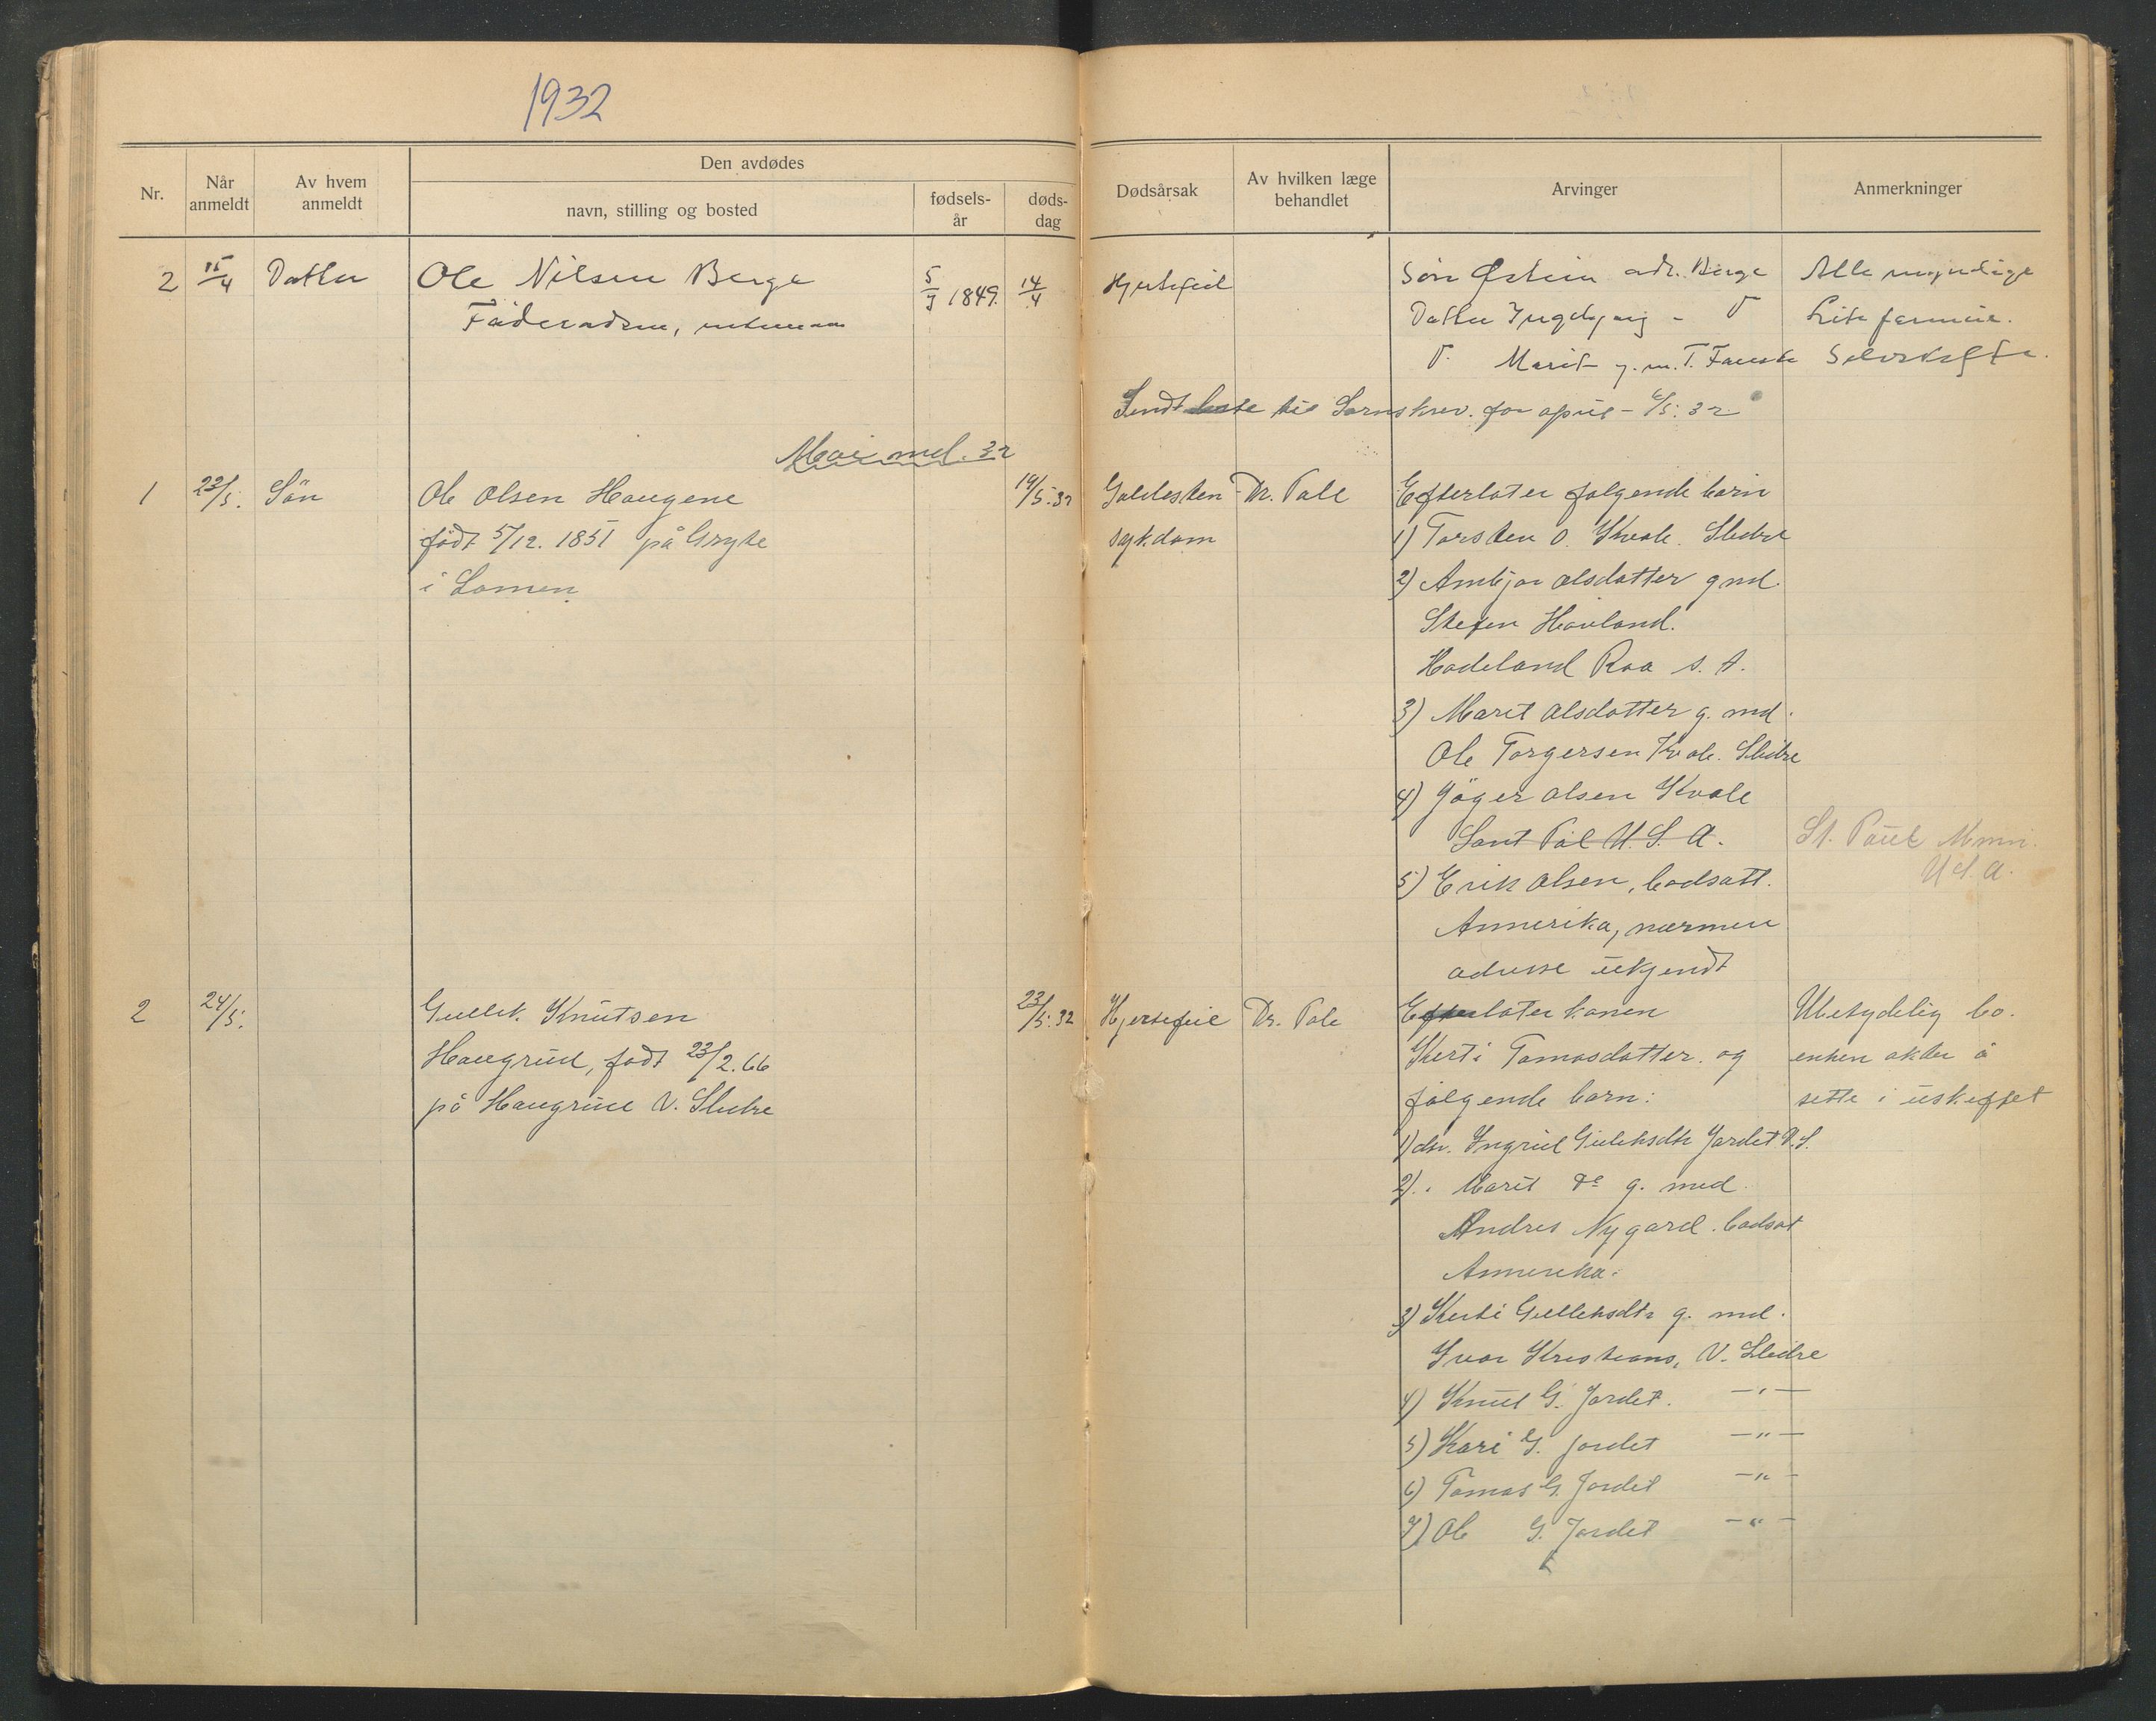 1932
Nr.
Når anmeldt
Av hvem anmeldt
Den avdødes
navn, stilling og bosted
fødsels-år
døds-dag
Dødsårsak
Av hvilken læge behandlet
Arvinger
Anmerkninger
2 15/4 Datter Ole Nilsen Berge 5/7 1849. 14/4 Hjertefeil Søn Østein adr. Berge Alle myndige
Föderådsm,
Datter Ingebjørg - D Lite formue.
D. Marit g.m. T. Fauske Selvskifte.
Sendt liste til Sornskrev. for april - 6/5. 32
Mai md. 32
1 23/5. Sön Ole Olsen Haugene 19/5.32 Galdesten- Dr. Pall Efterlater følgende barn
født 5/12. 1851 på Gryte sykdom 1) Torsten O. Kvale. Slidre
i Lomen 2) Ambjør Olsdatter g md.
Stefen Havland.
Hadeland Roa s. t.
3) Marit Olsdatter g. md.
Ole Torgersen Kvale. Slidre
4) Jöger Olsen Kvale
Sant Pål U. S. A. St. Paul Minn.
U S. A.
5) Erik Olsen, bodsatt.
Ammerika, nærmere
adresse ukjendt
2 24/5. Gullik Knutsen 23/5.32 Hjertefeil Dr. Pale Efterlater konen Ubetydelig bo.
Haugrud, født 23/2.66 Kerti Tomasdatter. og enken akter å
på Haugrud V. Slidre følgende barn: sitte i uskiftet
1) dtr. Ingrid Guliksdtr Jordet V. S.
2) " Marit do g. med
Andres Nygard. bodsat
Ammerika.
3) Kerti Gulliksdtr g. md.
Ivar Kristians, V. Slidre
4) Knut G. Jordet. - " -
5) Kari G. Jordet - " -
6) Tomas G. Jordet - " -
7) Ole G. Jordet - " -